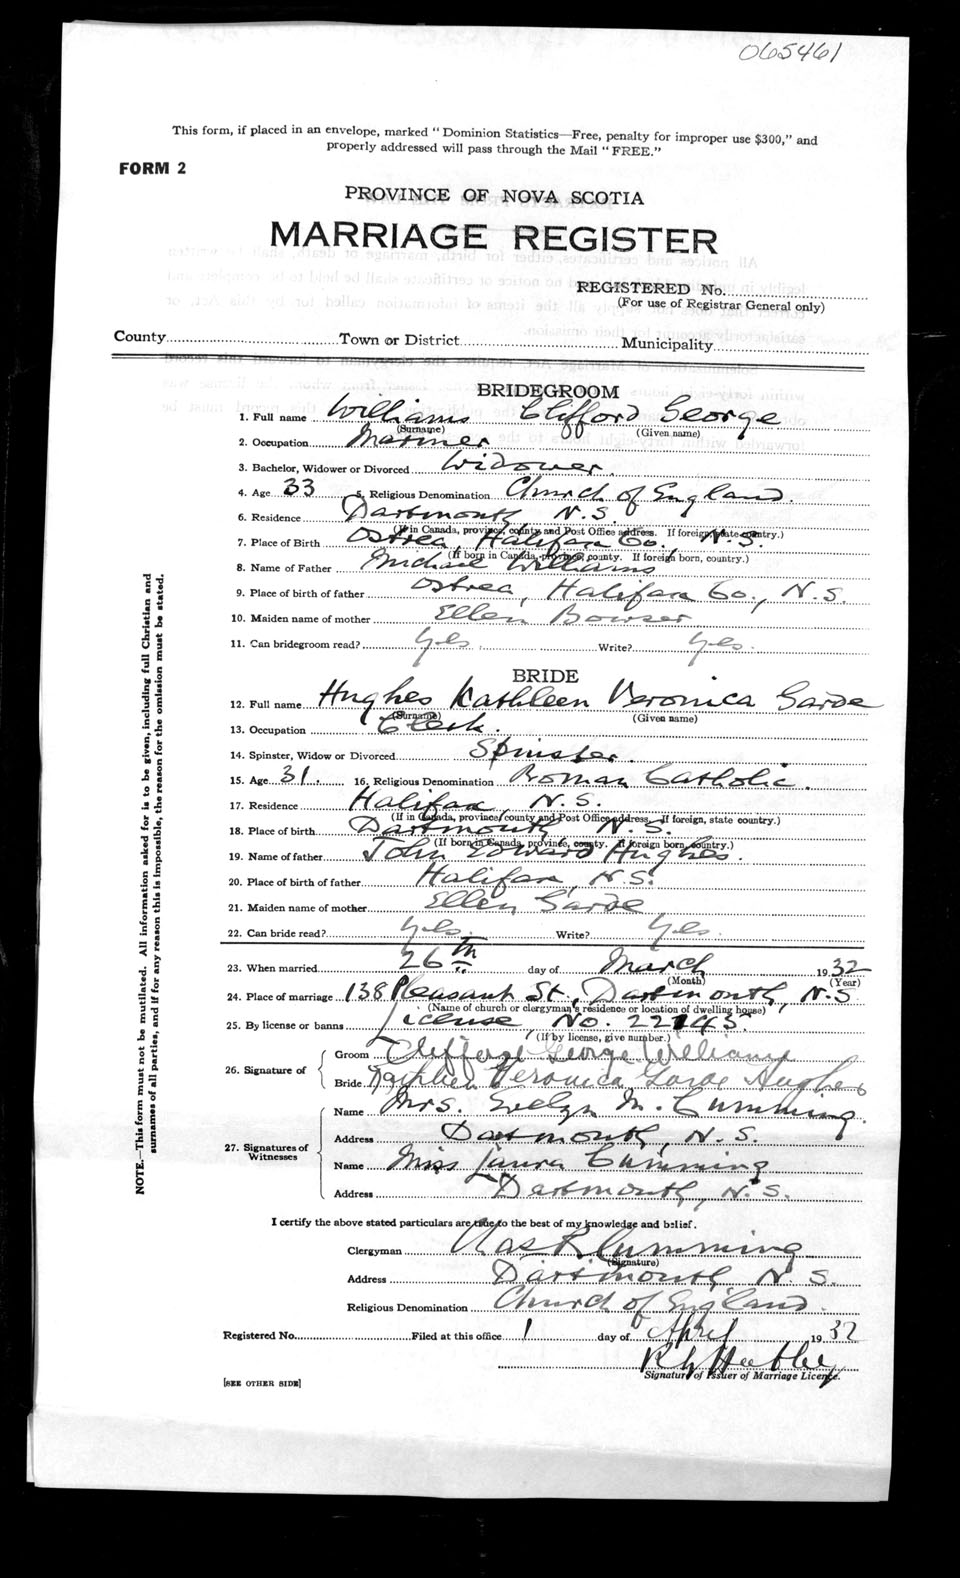 065461
This form, if placed in an envelope, marked "Dominion Statistics—Free, penalty for improper use $300," and
properly addressed will pass through the Mail "FREE."
FORM 2
PROVINCE OF NOVA SCOTIA
MARRIAGE REGISTER
REGISTERED No.
(For use of Registrar General only)
County Town or District Municipality
BRIDEGROOM
1. Full name Williams Clifford George
(Surname) (Given name)
2. Occupation Mariner
3. Bachelor, Widower or Divorced Widower.
4. Age 33 5. Religious Denomination Church of England.
6. Residence Dartmouth N.S.
(If in Canada, province, county and Post Office address. If foreign, state country.)
7. Place of Birth Ostrea, Halifax Co. N.S.
(If born in Canada, province, county. If foreign born, country.)
8. Name of Father Michael Williams
9. Place of birth of father Ostrea, Halifax Co., N.S.
10. Maiden name of mother Ellen Bowser
11. Can bridegroom read? Yes Write? Yes.
BRIDE
12. Full name Hughes Kathleen Veronica Garde
(Surname) (Given name)
13. Occupation Clerk.
14. Spinster, Widow or Divorced Spinster.
15. Age 31. 16. Religious Denomination Roman Catholic.
17. Residence Halifax, N.S.
(If in Canada, province, county and Post Office address, If foreign, state country.)
18. Place of birth Dartmouth N.S.
(If born in Canada, province, county. If foreign born, country.)
19. Name of father John Edward Hughes.
20. Place of birth of father Halifax, N.S.
21. Maiden name of mother Ellen Garde
22. Can bride read? Yes. Write? Yes.
23. When married 26th day of March 1932
(Month) (Year)
24. Place of marriage 138 Pleasant St, Dartmouth, N.S
(Name of church or clergyman's residence or location of dwelling house)
25. By license or banns License, No. 22143.
(If by license, give number.)
26. Signature of
Groom Clifford George Williams
Bride Kathleen Veronica Garde Hughes
27. Signatures of Witnesses
Name Mrs. Evelyn M. Cumming.
Address Dartmouth, N.S.
Name Miss Laura Cumming
Address Dartmouth, N.S.
I certify the above stated particulars are true to the best of my knowledge and belief.
Clergyman Chas R Cumming
(Signature)
Address Dartmouth N.S.
Religious Denomination Church of England.
Registered No. Filed at this office 1 day of April 1932
Signature of Issuer of Marriage Licence.
[SEE OTHER SIDE]
NOTE.—This form must not be mutilated. All information asked for is to be given, including full Christian and
surnames of all parties, and if for any reason this is impossible, the reason for the omission must be stated.